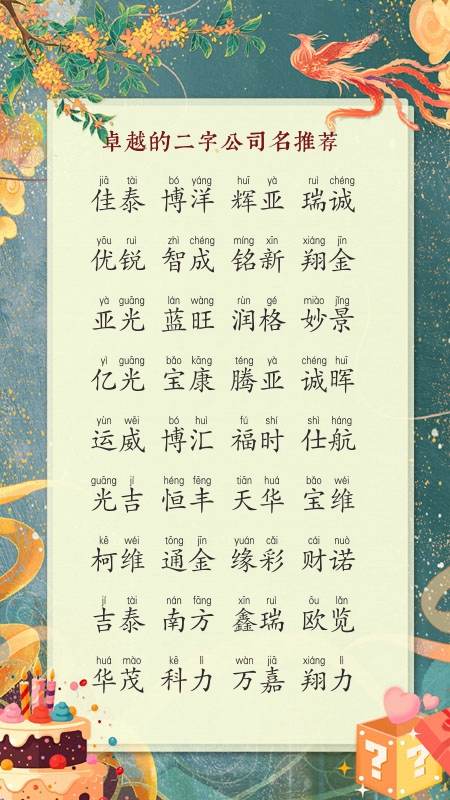 卓越的二字公司名推荐
jiā tài bó yáng huī yà ruì chéng
佳泰 博洋 辉亚 瑞诚
yōu ruì zhì chéng míng xīn xiáng jīn
优锐 智成 铭新 翔金
yà guāng lán wàng rùn gé miào jǐng
亚光 蓝旺 润格 妙景
yì guāng bǎo kāng téng yà chéng huī
亿光 宝康 腾亚 诚晖
yùn wēi bó huì fú shí shì háng
运威 博汇 福时 仕航
guāng jí héng fēng tiān huá bǎo wéi
光吉 恒丰 天华 宝维
kē wéi tōng jīn yuán cǎi cái nuò
柯维 通金 缘彩 财诺
jí tài nán fāng xīn ruì ōu lǎn
吉泰 南方 鑫瑞 欧览
huá mào kē lì wàn jiā xiáng lì
华茂 科力 万嘉 翔力
? ?